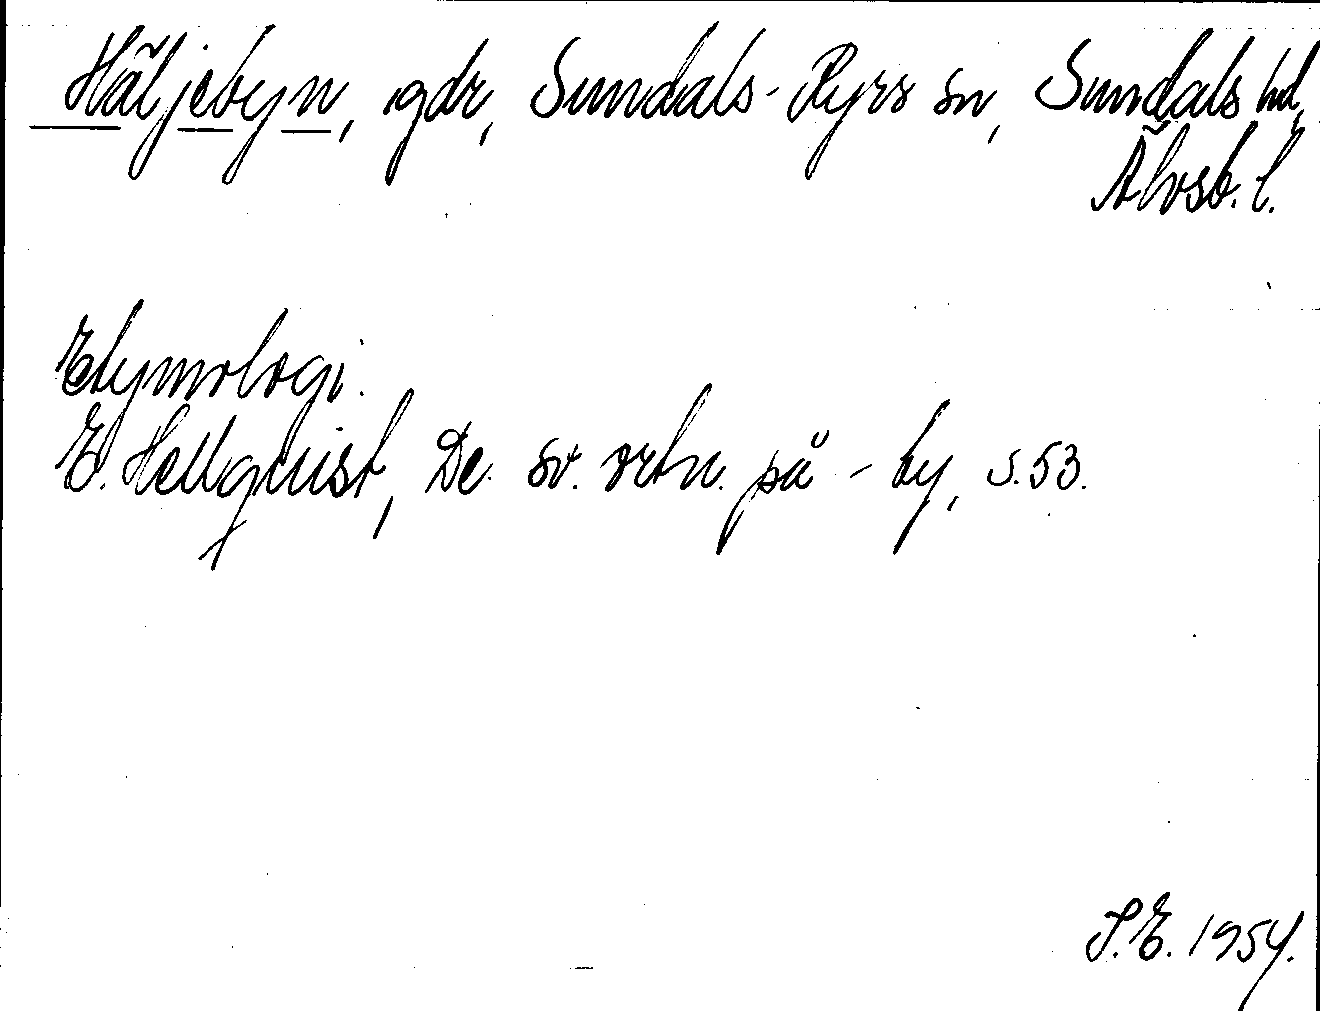 Häljebyn, gdr, Sundals-Ryrs sn, Sundals hd,
Älvsb. l.
Etymologi.
E. Hellquist, De sv. ortn. på -by, s. 53.
S.E. 1954.